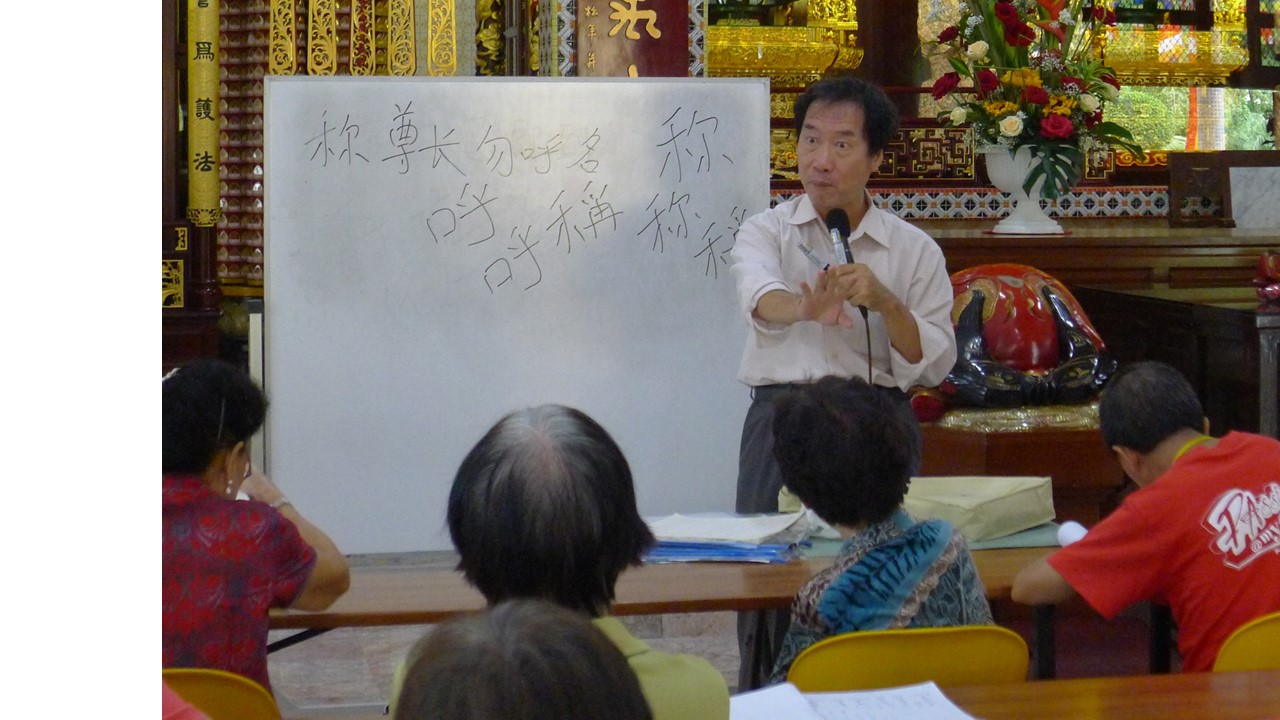 爲護法
称尊长勿呼名 称
呼 称
呼 稱